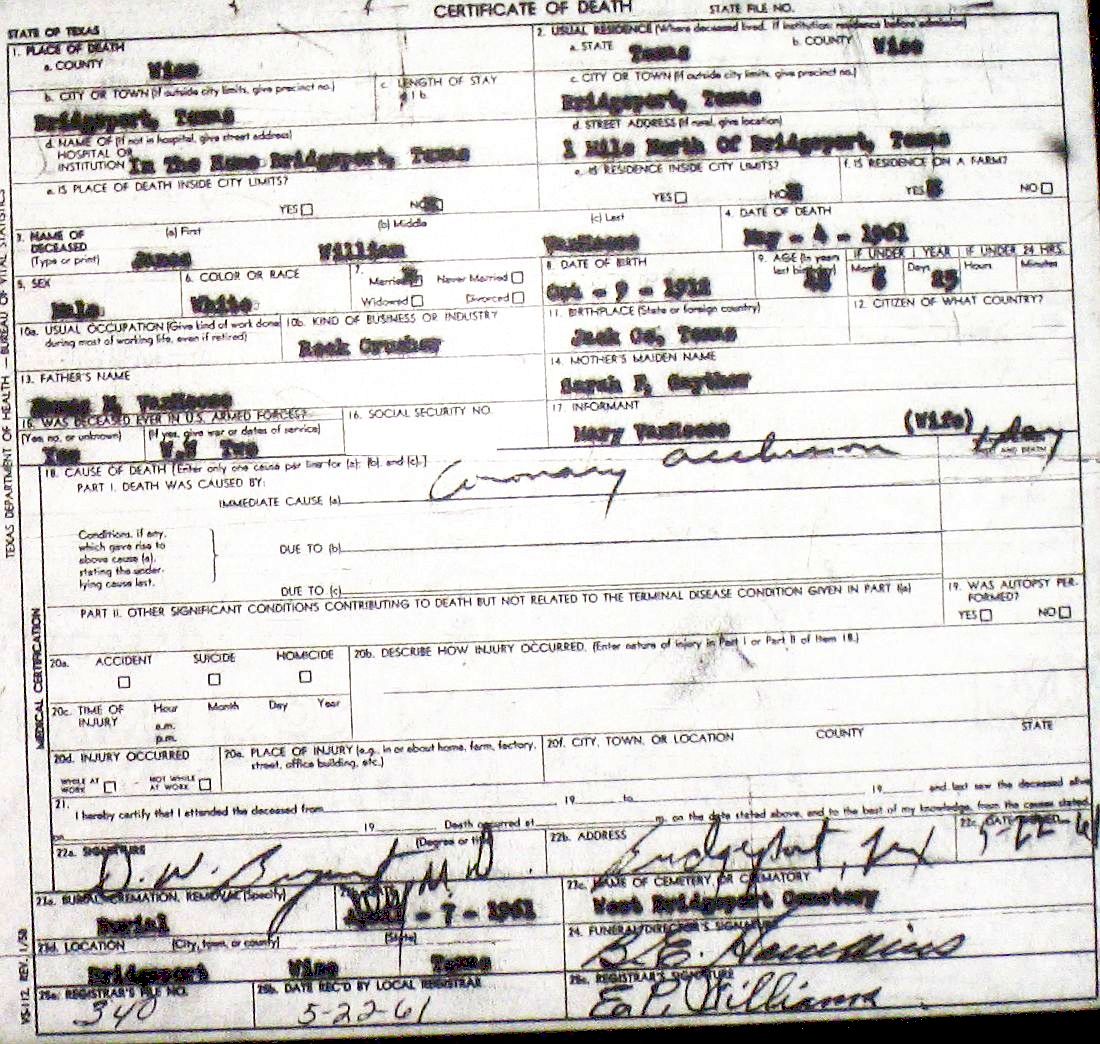 CERTIFICATE OF DEATH STATE FILE NO.
STATE OF TEXAS
1. PLACE OF DEATH
a. COUNTY
Wise
2. USUAL RESIDENCE (Where deceased lived. If institution: residence before admission)
a. STATE Texas b. COUNTY Wise
b. CITY OR TOWN (If outside city limits, give precinct no.)
Bridgeport, Texas
c. LENGTH OF STAY
1 b.
c. CITY OR TOWN (If outside city limits, give precinct no.)
Bridgeport, Texas
d. NAME OF (If not in hospital, give street address)
HOSPITAL OR
INSTITUTION In The Home Bridgeport, Texas
d. STREET ADDRESS (If rural, give location)
1 Mile North Of Bridgeport, Texas
e. IS PLACE OF DEATH INSIDE CITY LIMITS?
YES NO
e. IS RESIDENCE INSIDE CITY LIMITS?
YES NO
f. IS RESIDENCE ON A FARM?
YES NO
3. NAME OF
DECEASED
(Type or print)
(a) First (b) Middle (c) Last
James William VanHoose
4. DATE OF DEATH
May - 4 - 1961
5. SEX
Male
6. COLOR OR RACE
White
7.
Married Never Married
Widowed Divorced
8. DATE OF BIRTH
Oct - 9 - 1912
9. AGE (In years
last birthday)
48
IF UNDER 1 YEAR IF UNDER 24 HRS.
Months Days Hours Minutes
6 25
10a. USUAL OCCUPATION (Give kind of work done
during most of working life, even if retired)
10b. KIND OF BUSINESS OR INDUSTRY
Rock Crusher
11. BIRTHPLACE (State or foreign country)
Jack Co, Texas
12. CITIZEN OF WHAT COUNTRY?
13. FATHER'S NAME
M. VanHoose
14. MOTHER'S MAIDEN NAME
Sarah F. Gayther
15. WAS DECEASED EVER IN U.S. ARMED FORCES?
(Yes, no, or unknown) (If yes, give war or dates of service)
Yes W.W Two
16. SOCIAL SECURITY NO.
17. INFORMANT
Mary VanHoose (Wife)
18. CAUSE OF DEATH [Enter only one cause per line for (a), (b), and (c).]
PART I. DEATH WAS CAUSED BY:
IMMEDIATE CAUSE (a) Coronary occlusion
AND DEATH
Conditions, if any,
which gave rise to
above cause (a),
stating the under-
lying cause last.
DUE TO (b)
DUE TO (c)
PART II. OTHER SIGNIFICANT CONDITIONS CONTRIBUTING TO DEATH BUT NOT RELATED TO THE TERMINAL DISEASE CONDITION GIVEN IN PART I(a)
19. WAS AUTOPSY PER-
FORMED?
YES NO
20a. ACCIDENT SUICIDE HOMICIDE
20b. DESCRIBE HOW INJURY OCCURRED. (Enter nature of injury in Part I or Part II of Item 18.)
20c. TIME OF
INJURY
Hour Month Day Year
a.m.
p.m.
20d. INJURY OCCURRED
WHILE AT
WORK
NOT WHILE
AT WORK
20e. PLACE OF INJURY (e.g., in or about home, farm, factory,
street, office building, etc.)
20f. CITY, TOWN, OR LOCATION COUNTY STATE
21.
I hereby certify that I attended the deceased from 19 to 19 and last saw the deceased alive
on 19 Death occurred at m. on the date stated above, and to the best of my knowledge, from the causes stated.
22a. SIGNATURE (Degree or title)
D. W. Bryant, M.D.
22b. ADDRESS
Bridgeport, Tex
22c. DATE SIGNED
5-22-61
23a. BURIAL, CREMATION, REMOVAL (Specify)
Burial
- 7 - 1961
23c. NAME OF CEMETERY, OR CREMATORY
West Bridgeport Cemetery
23d. LOCATION (City, town, or county) (State)
Bridgeport Wise Texas
24. FUNERAL DIRECTOR'S SIGNATURE
B.E. Hawkins
25a. REGISTRAR'S FILE NO.
340
25b. DATE REC'D BY LOCAL REGISTRAR
5-22-61
25c. REGISTRAR'S SIGNATURE
E.P. Williams
TEXAS DEPARTMENT OF HEALTH — BUREAU OF VITAL STATISTICS
MEDICAL CERTIFICATION
VS-112, REV. 1/58